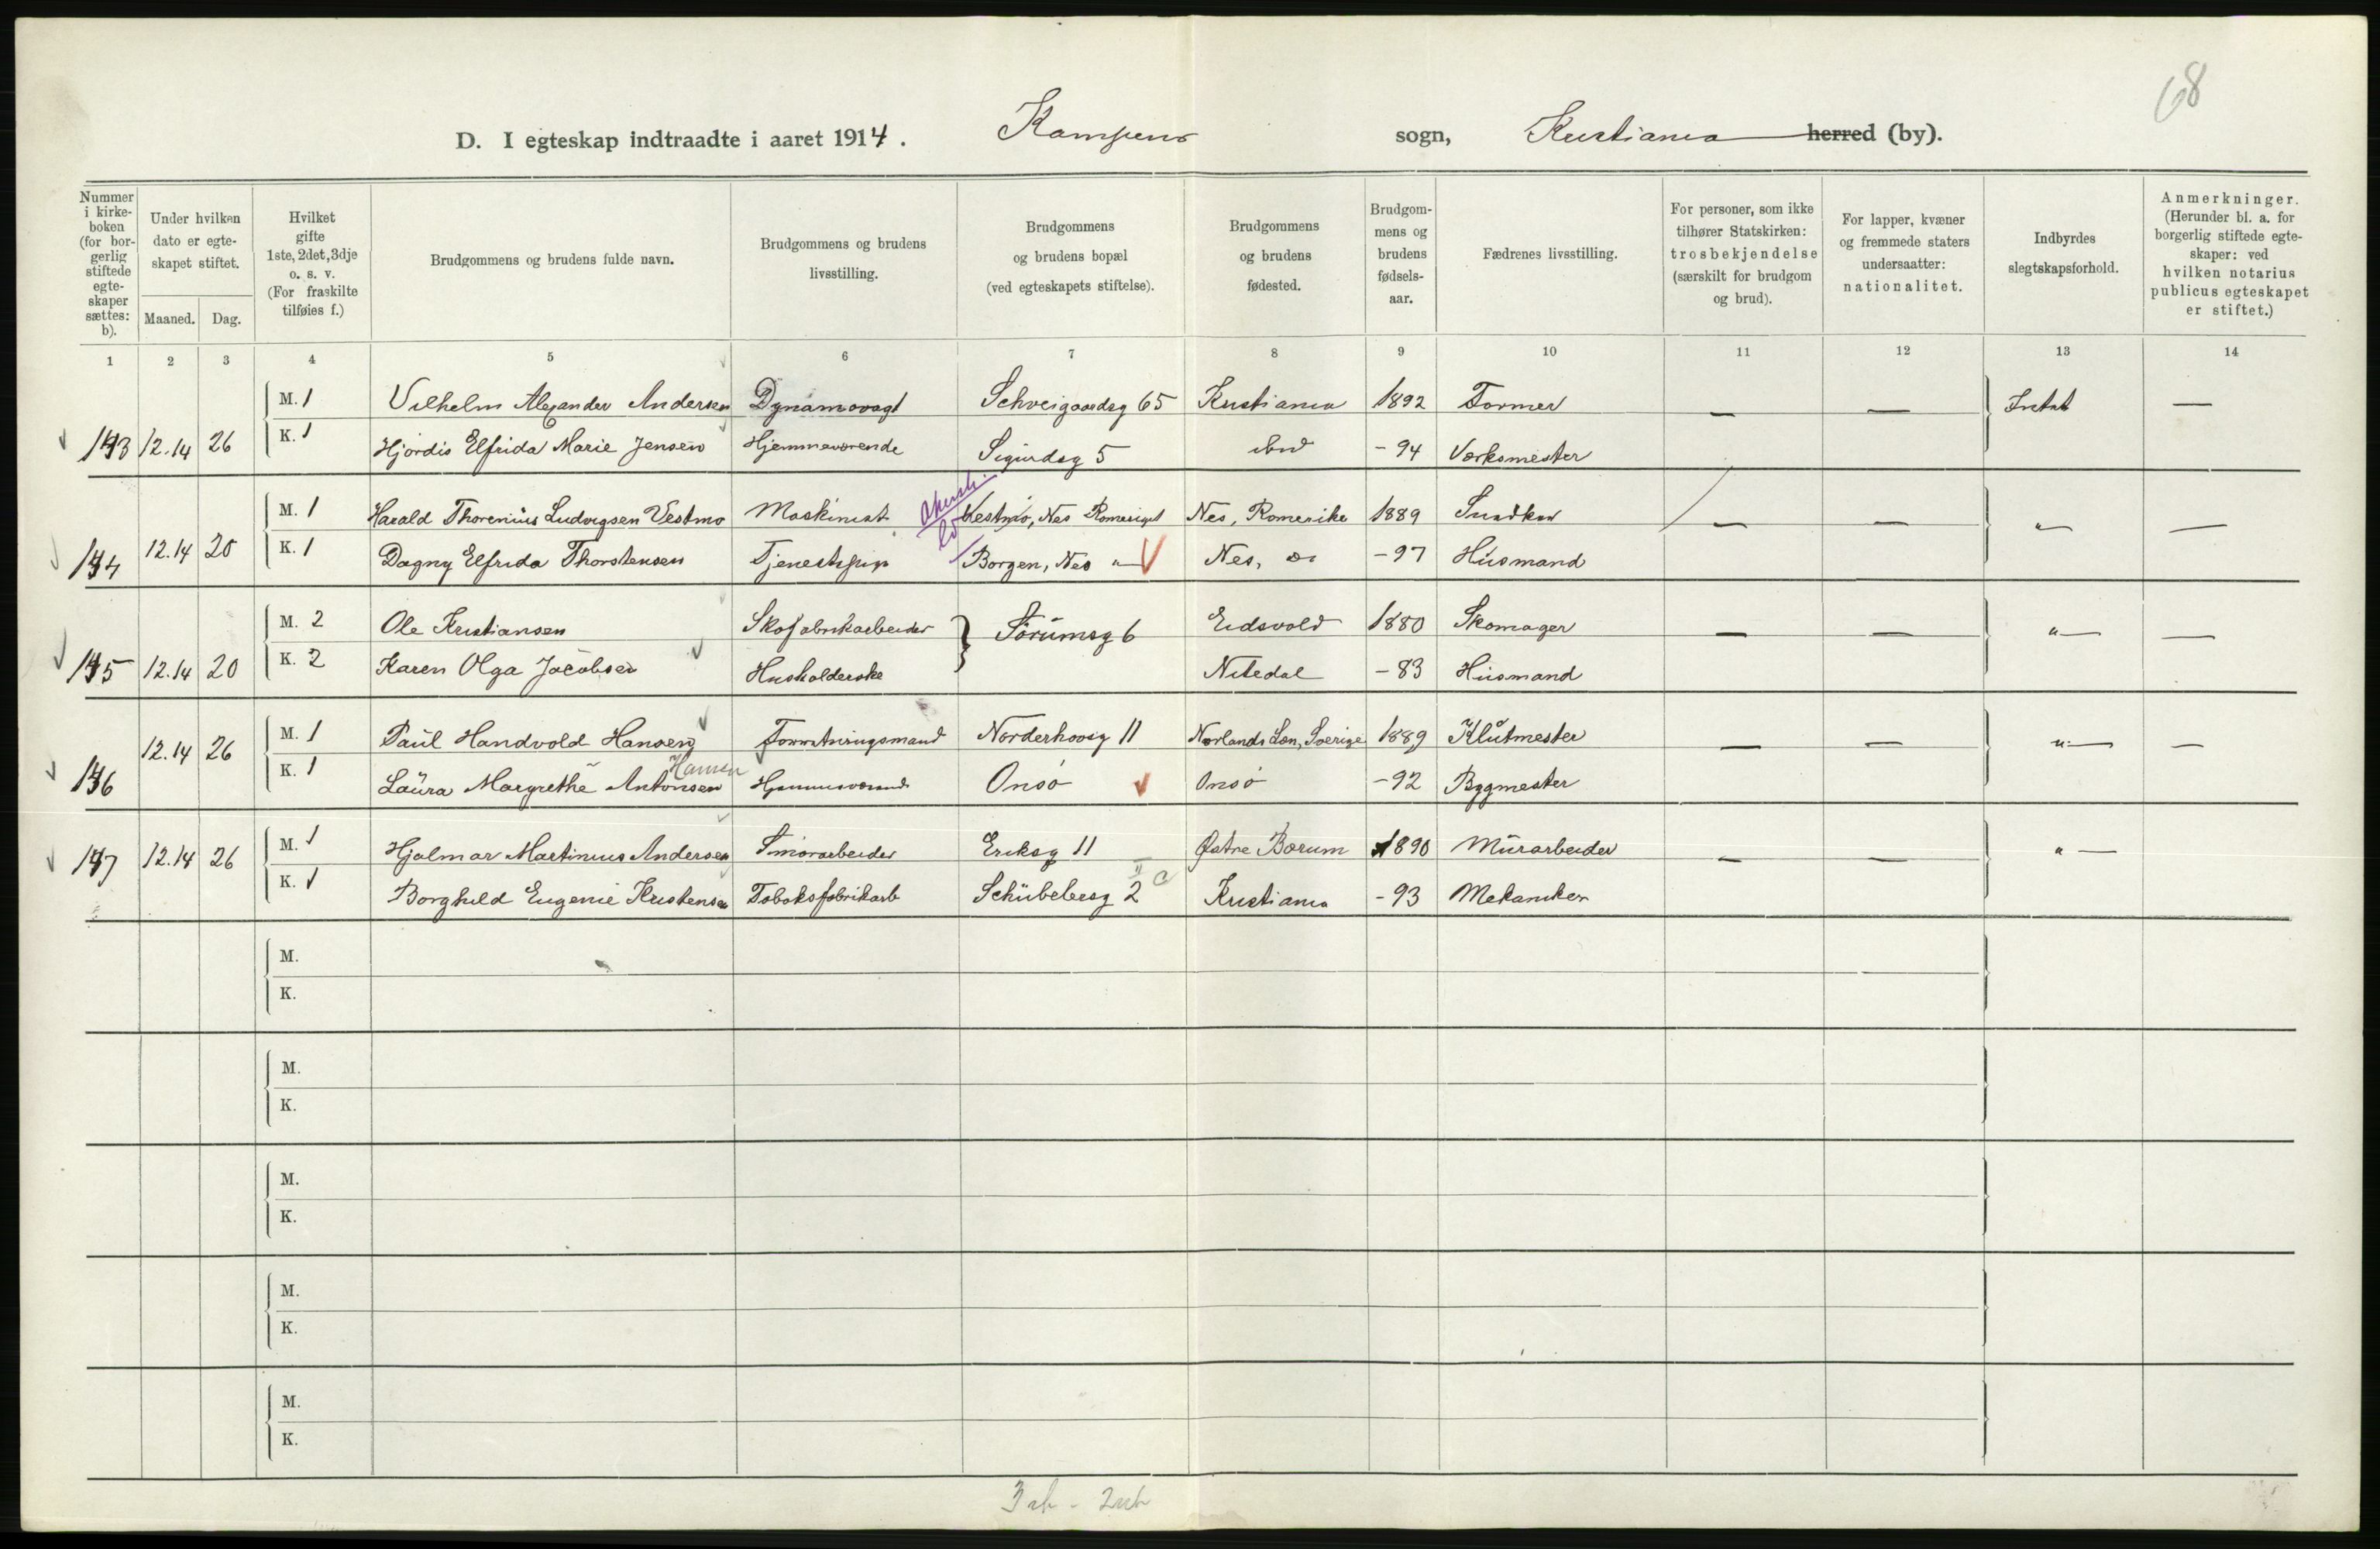 68
D. I egteskap indtraadte i aaret 1914. Kampens sogn, Kristiania herred (by).
Nummer i kirke-boken (for bor-gerlig stiftede egte-skaper sættes: b).
Under hvilken dato er egte-skapet stiftet.
Maaned. Dag.
Hvilket gifte 1ste, 2det, 3dje o. s. v. (For fraskilte tilføies f.)
Brudgommens og brudens fulde navn.
Brudgommens og brudens livsstilling.
Brudgommens og brudens bopæl (ved egteskapets stiftelse).
Brudgommens og brudens fødested.
Brudgom-mens og brudens fødsels-aar.
Fædrenes livsstilling.
For personer, som ikke tilhører Statskirken: trosbekjendelse (særskilt for brudgom og brud).
For lapper, kvæner og fremmede staters undersaatter: nationalitet.
Indbyrdes slegtskapsforhold.
Anmerkninger. (Herunder bl. a. for borgerlig stiftede egte-skaper: ved hvilken notarius publicus egteskapet er stiftet.)
1 2 3 4 5 6 7 8 9 10 11 12 13 14
M. 1 Vilhelm Alexander Andersen Dynamovagt Schveigaardsg 65 Kristiania 1892 Former — — Intet —
143 12.14 26 K. 1 Hjördis Elfrida Marie Jensen Hjemmeværende Sigurdsg 5 ibid - 94 Værksmester
M. 1 Harald Thorenius Ludvigsen Vestmo Maskinist Vestmo, Nes Romeriget Nes, Romerike 1889 — — " —
144 12.14 20 K. 1 Dagny Elfrida Thorstensen Borgen, Nes " Nes, do - 97 Husmand
M. 2 Ole Kristiansen Skofabrikarbeider Sörumsg 6 Eidsvold 1880 Skomager — — " —
145 12.14 20 K. 2 Karen Olga Jacobsen Husholderske Nitedal - 83 Husmand
M. 1 Paul Handvold Hansen Forretningsmand Norderhovsg 11 Norlands Len, Sverige 1889 — — " —
Hansen
146 12.14 26 K. 1 Laura Margrethe Antonsen Hjemmeværende Onsö Onsö - 92 Bygmester
M. 1 Hjalmar Martinius Andersen Smörarbeider Eriksg 11 Østre Bærum 1890 Murarbeider — — " —
147 12.14 26 K. 1 Borghild Eugenie Kristensen Tobaksfabrikarb Schübelersg 2 Kristiania - 93 Mekaniker
M.
K.
M.
K.
M.
K.
M.
K.
M.
K.